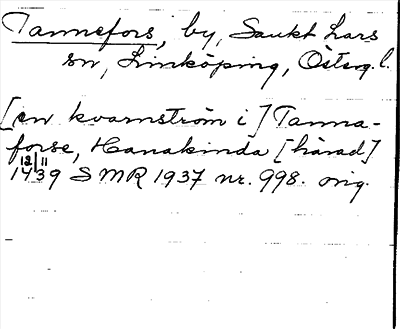 Tannefors, by, Sankt Lars
sn, Linköping, Österg. l.
[en kvarnström i] Tanna-
forse, Hanakinda [härad]
12/11
1439 SMR 1937 nr. 998. orig.